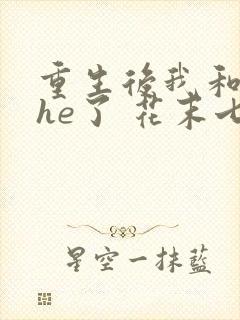 重生後我和
he了 花末七
星空一抹蓝